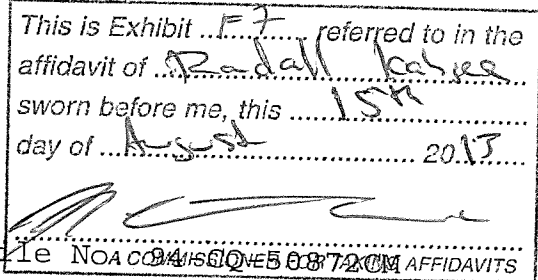 This is Exhibit ...F7... referred to in the
affidavit of ...Randall...
sworn before me, this ...15th...
day of ...August... 2013...
A COMMISSIONER FOR TAKING AFFIDAVITS
le No 94-CQ-50872CM